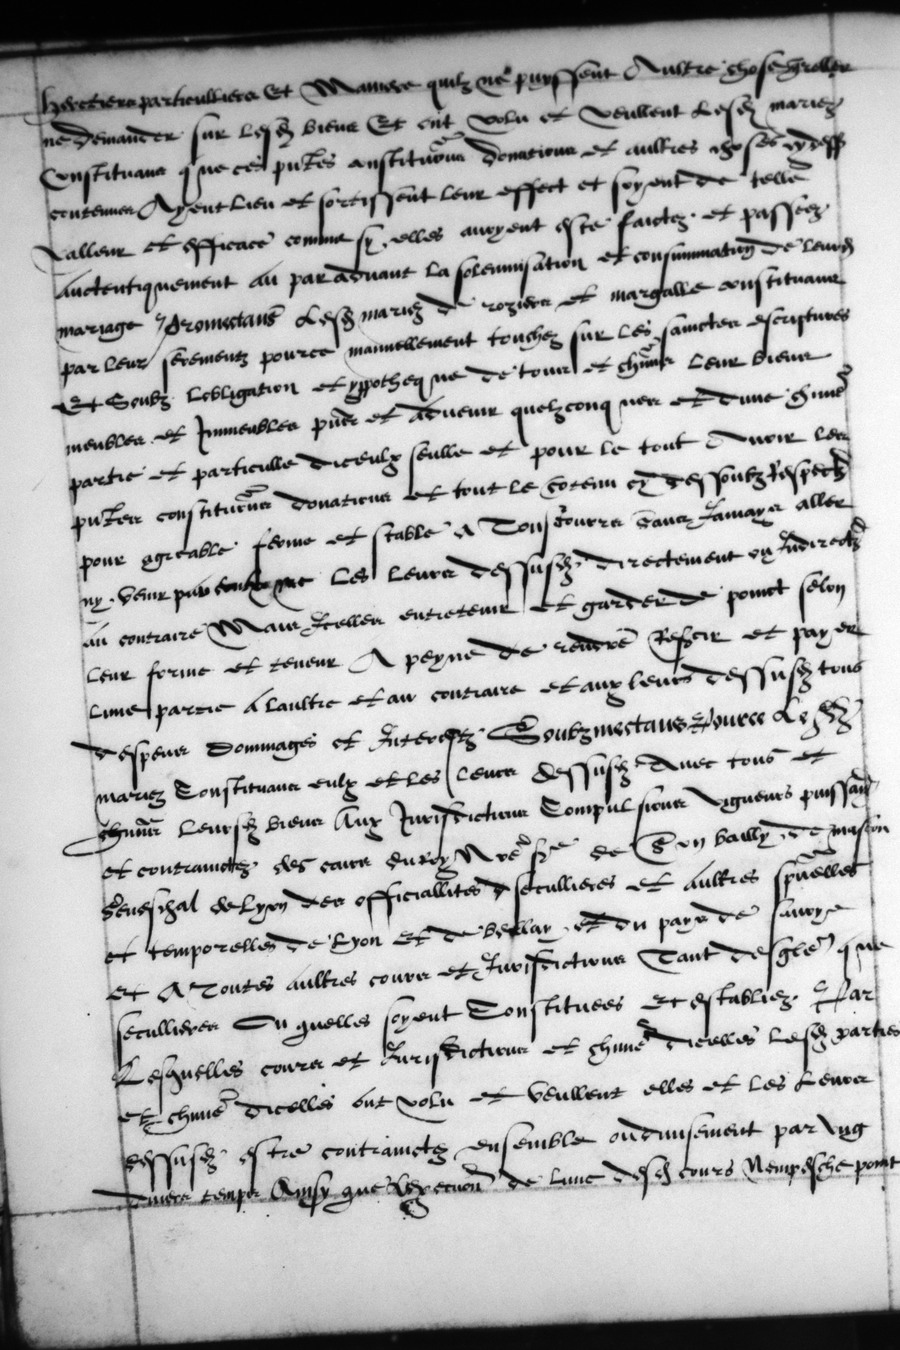 heretiers particulliers Et Maindre quilz ne puyssent Aultre chose quereller
ne demander sur lesd biens Et ont volu et veullent lesd mariez
Constituans que ces pntes constitutions donations et aultres choses cy dess
contenues Ayent lieu et sortissent leur effect et soyent de telle
valleur et efficace comme sy elles avoyent esté faictes et passees
auctentiquement au paradvant la solempnisation et consummation de leurd
mariage promectans lesd mariez de roziere et margatte constituans
par leurs serementz pource manuellement touchez sur les sainctes escriptures
Et Soubz lobligation et ypotheque de tous et chuns leurs biens
meubles et Immeubles pns et advenir quelzconques et dune chune
partie et particulle diceulx seulle et pour le tout Avoir les
pntes constitutions donations et tout le contenu cy dessoubz respect
pour agreable ferme et stable A Tousjours sans Jamays aller
ny venir par les leurs dessusd directement ou Indirect
au contraire Mais Icelles entretenir et garder de poinct selon
leur forme et teneur A peyne de rendre Reffaire et payer
lune partie a laultre et au contraire et aux leurs dessusd tous
despens dommages et Interestz Soubzmectans Pource lesd
mariez Constituans eulx et les leurs dessusd Avec tous et
chuns leursd biens Aux Jurisdictions Compulsions vigueurs puissan
et contrainctes des cours du roy Nre sre de Son bailly de mascon
seneschal de Lyon des officiallites seculieres et aultres spuelles
et temporelles de Lyon et de bellay et du pays de savoye
et A Toutes aultres cours et Jurisdictions Tant desglise que
seculieres Ou quelles soyent Constituees et establies Par
Lesquelles cours et Jurisdictions et chune dicelles lesd parties
et chune dicelles ont volu et veullent elles et les leurs
dessusd estre contrainctes ensemble ou divisement par Ung
divers temps Ainsy que lexecution de lune desd cours Nempesche point